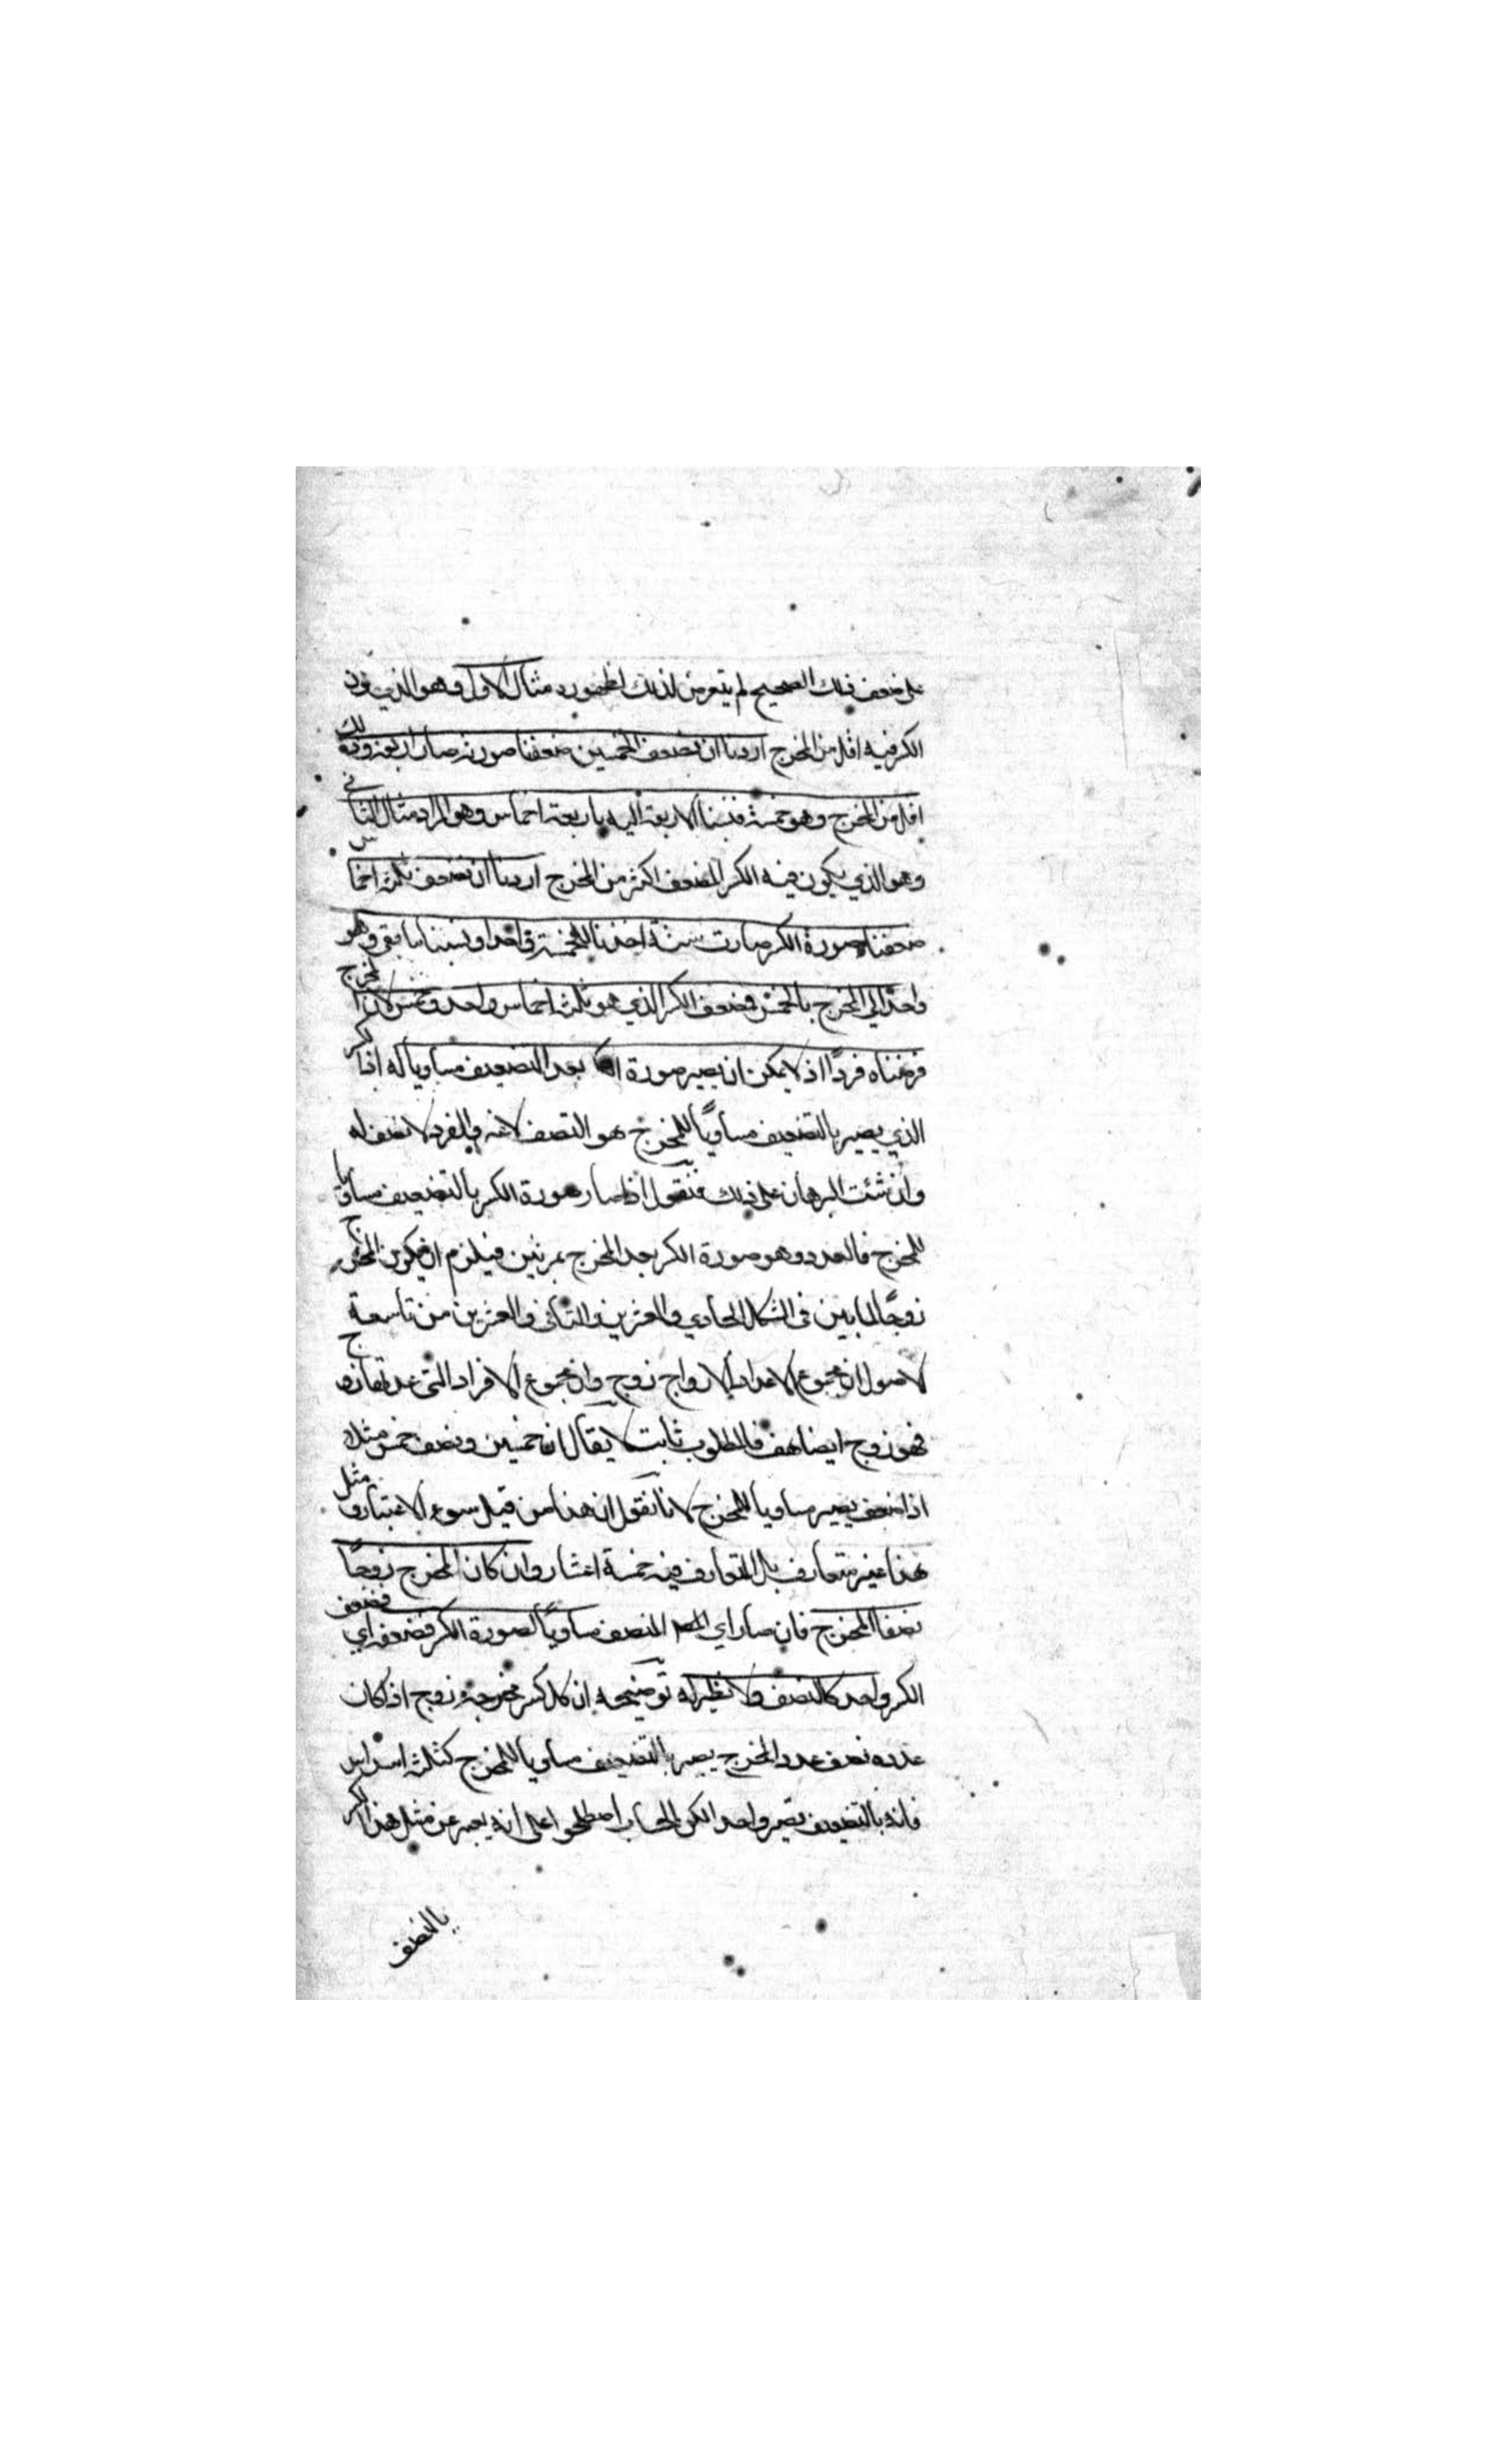 على ضعف ذلك الصحيح لم يتعرض لذلك لظهوره مثال الاول وهو الذي يكون
الكسر فيه اقل من المخرج اردنا ان نضعف الخمسين ضعفنا صورته صار اربعة وذلك
اقل من المخرج وهو خمسة فنسبنا الاربعة اليه باربعة اخماس وهو المراد مثال الثاني
وهو الذي يكون فيه الكسر المضعف اكثر من المخرج اردنا ان نضعف ثلثة اخماس
ضعفنا صورة الكسر صارت ستة اخذنا للخمسة واحدا ونسبنا ما بقي وهو
واحدًا الى المخرج بالخمس فضعف الكسر الذي هو ثلثة اخماس واحد وخمس لان المخرج
فرضناه فردًا اذ لا يمكن ان يصير صورة بعد التضعيف مساويا له اذ الكسر
الذي يصير بالتضعيف مساويًا للمخرج هو النصف لا غير والفرد لا نصف له
وان شئت البرهان على ذلك فنقول اذا صار صورة الكسر بالتضعيف مساويا
للمخرج فالعدد وهو صورة الكسر يعد المخرج بمرتين فيلزم ان يكون المخرج
زوجًا لما بين في الشكل الحادي والعشرين والثاني والعشرين من تاسعة
الاصول ان مجموع الاعداد الازواج زوج وان مجموع الافراد التي عدتها زوج
فهو زوج ايضا هف فالمطلوب ثابت لا يقال ان خمسين ونصف خمس مثلا
اذا ضعف يصير مساويا للمخرج لانا نقول ان هذا من قبيل سوء الاعتبار ومثل
هذا غير متعارف بل المتعارف فيه خمسة اعشار وان كان المخرج زوجًا
نصفنا المخرج فان صار اي المنصف مساويًا لصورة الكسر فضعفه اي فضعف
الكسر واحد كالنصف ولا نظير له توضيحه ان كل كسر مخرجه زوج اذا كان
عدده نصف عدد المخرج يصير بالتضعيف مساويا للمخرج كثلثة اسداس
فانه بالتضعيف يصير واحدا لكن الحساب اصطلحوا على انه يعبر عن مثل هذا الكسر
بالنصف